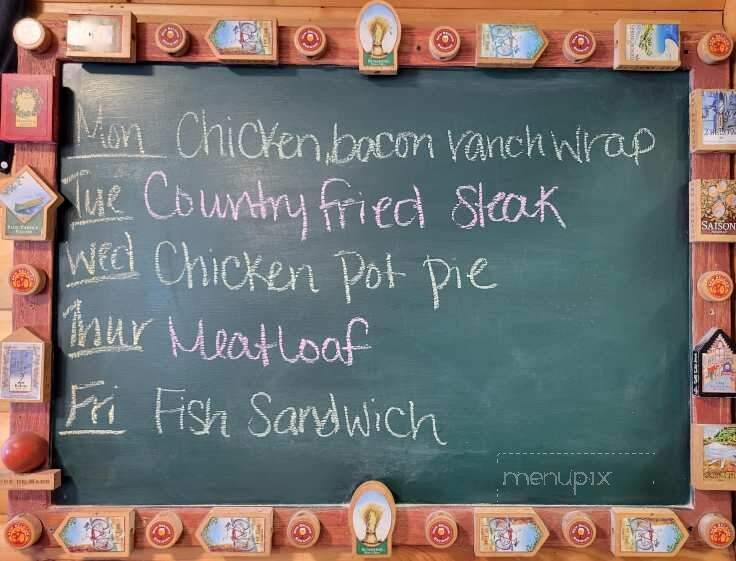 Mon Chicken, bacon ranch wrap
Tue Country fried Steak
Wed Chicken pot pie
Thur Meatloaf
Fri Fish Sandwich
menupix
SAISON